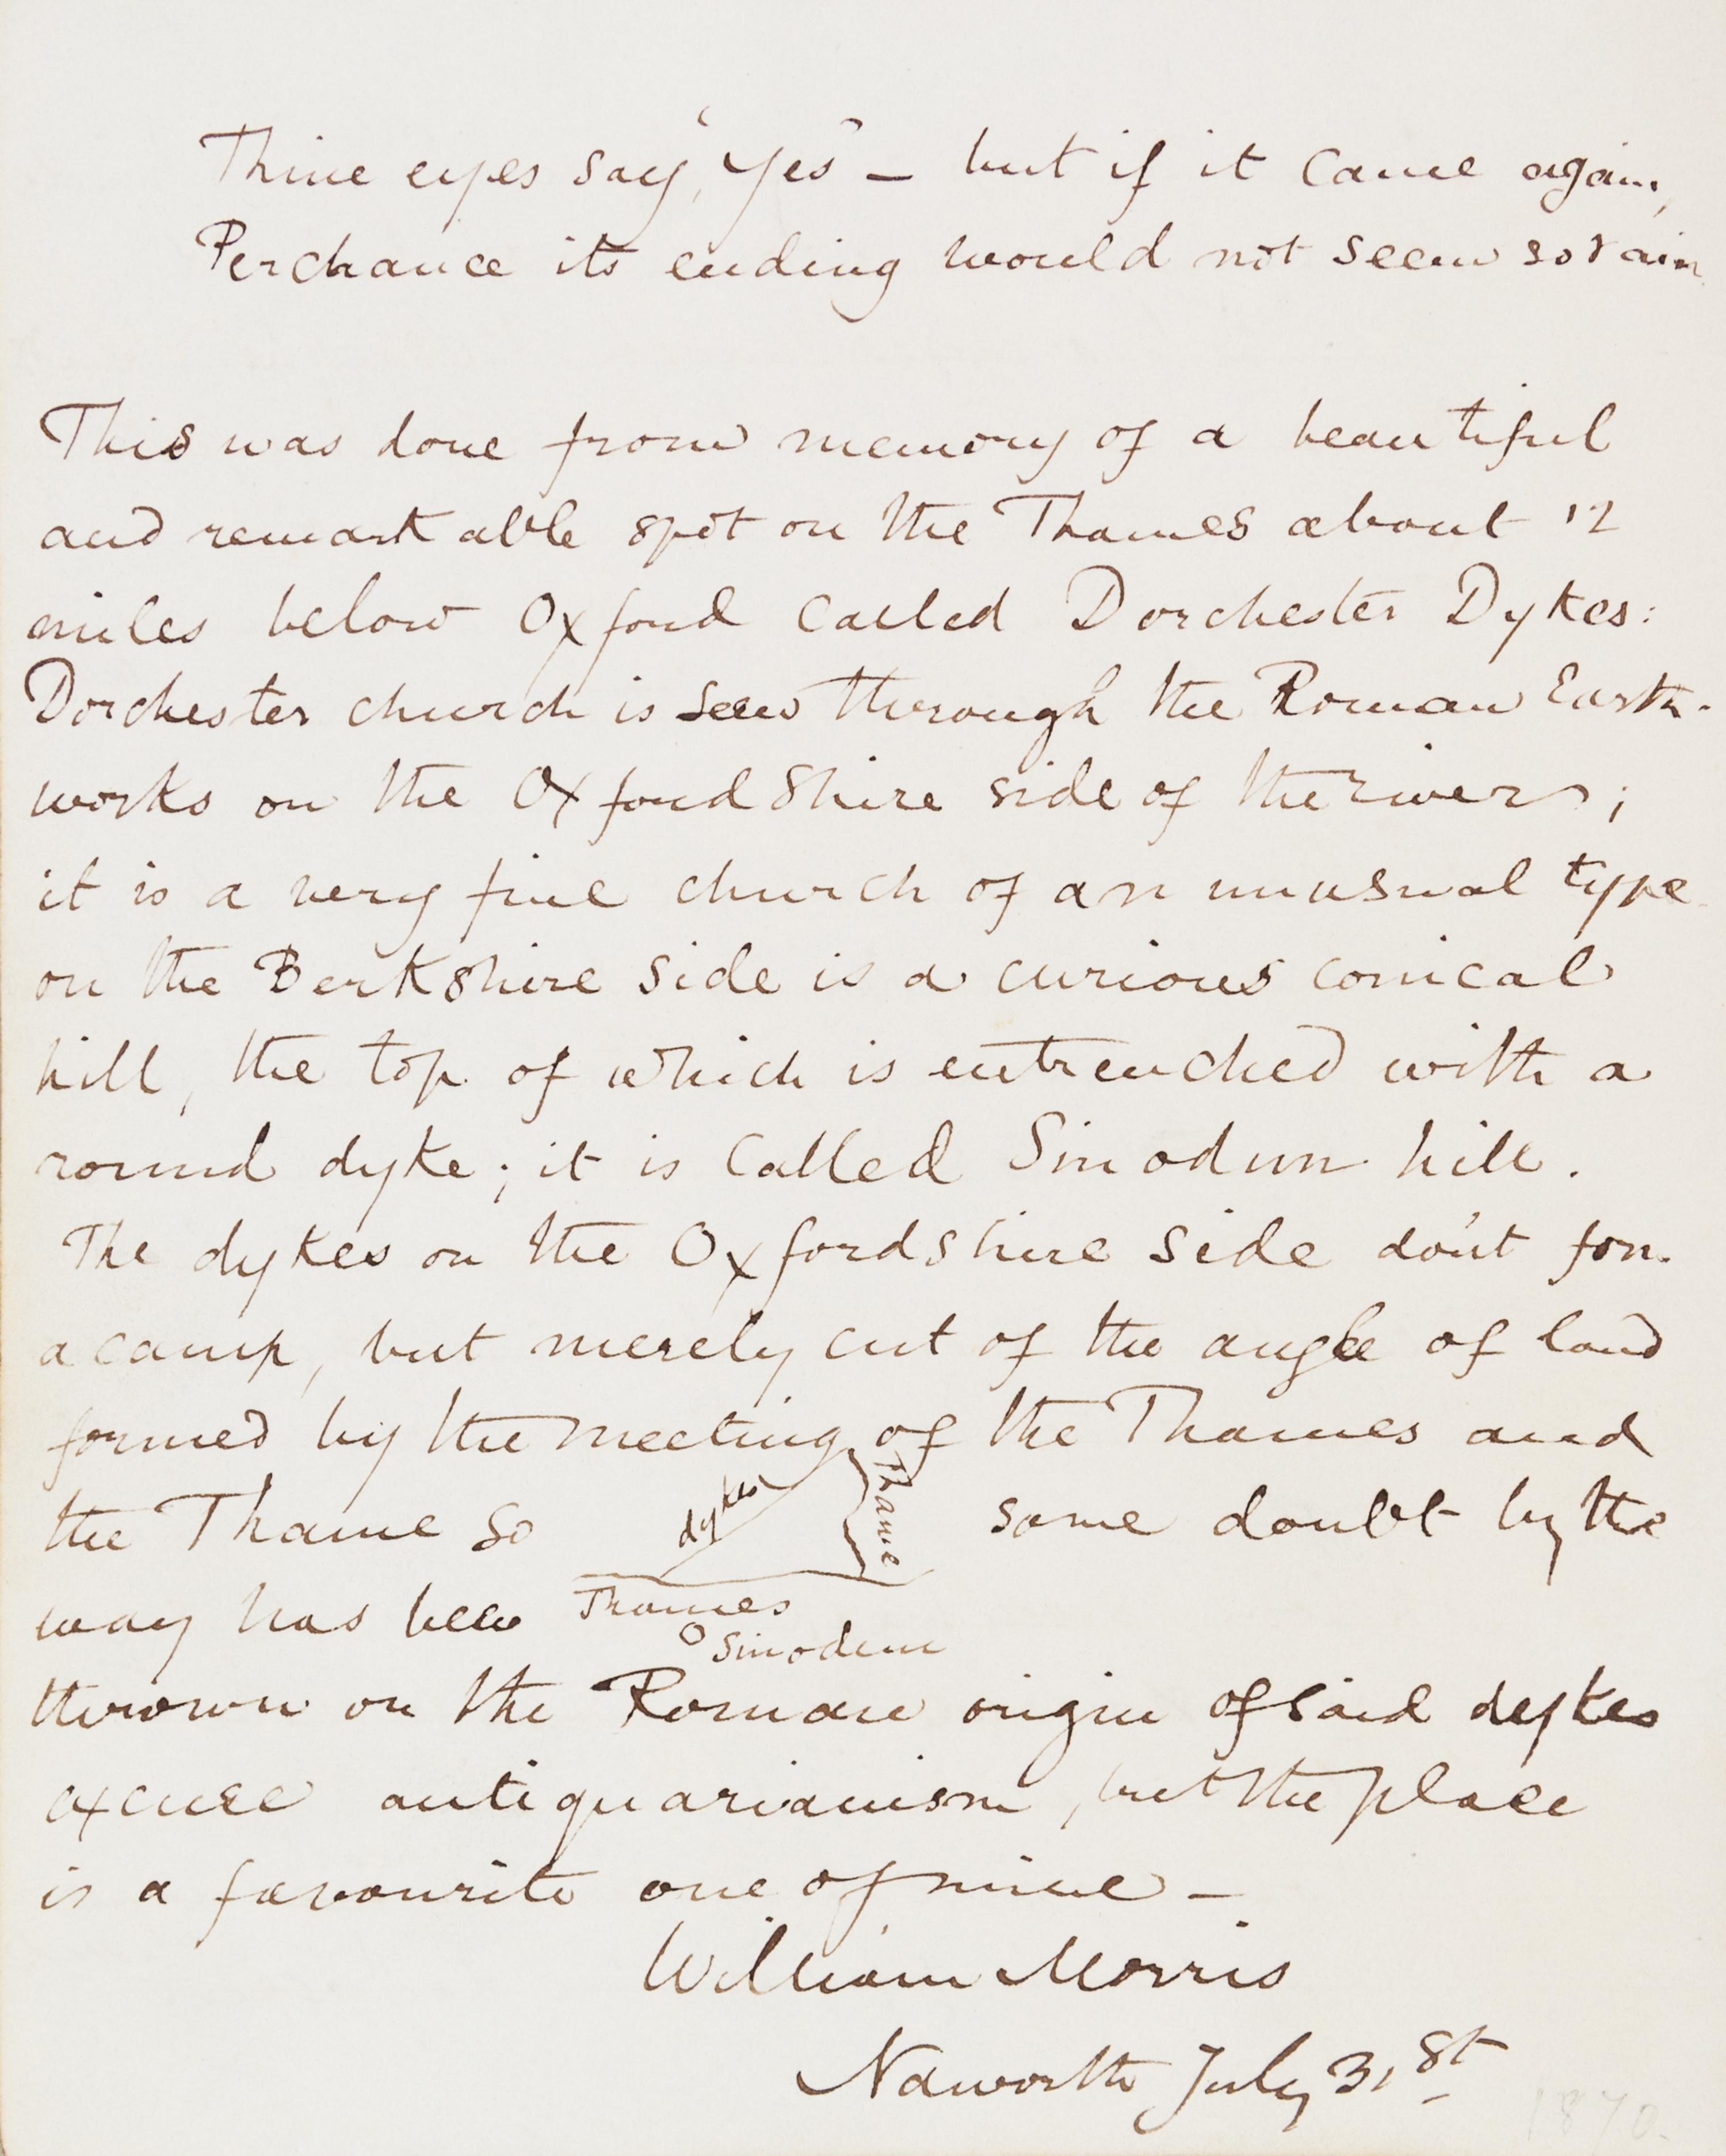 Thine eyes say, "Yes" — but if it came again,
Perchance its ending would not seem so vain.
This was done from memory of a beautiful
and remarkable spot on the Thames about 12
miles below Oxford called Dorchester Dykes:
Dorchester church is seen through the Roman Earth-
works on the Oxfordshire side of the river;
it is a very fine church of an unusual type
on the Berkshire side is a curious conical
hill, the top of which is entrenched with a
round dyke; it is called Sinodun hill.
The dykes on the Oxfordshire side don't form
a camp, but merely cut of the angle of land
formed by the meeting of the Thames and
the Thame so
dykes
Thame
some doubt by the
way has been
Thames
Sinodun
thrown on the Roman origin of said dykes
excuse antiquarianism, but the place
is a favourite one of mine —
William Morris
Naworth July 31st
1870.